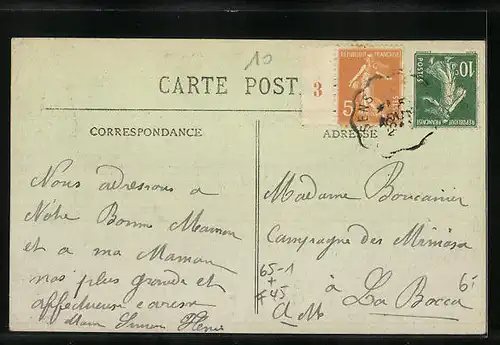 10
CARTE POST
3
RÉPUBLIQUE FRANÇAISE
5
10c
POSTES
RÉPUBLIQUE FRANÇAISE
SENS
CORRESPONDANCE
ADRESSE
Nous adressons a
Nôtre Bonne Maman
et a ma Maman
nos plus grande et
affectueuse caresse
Simon
Madame Boucanier
Campagne des Mimosa
à La Bocca
A M
65-1
+
F 45